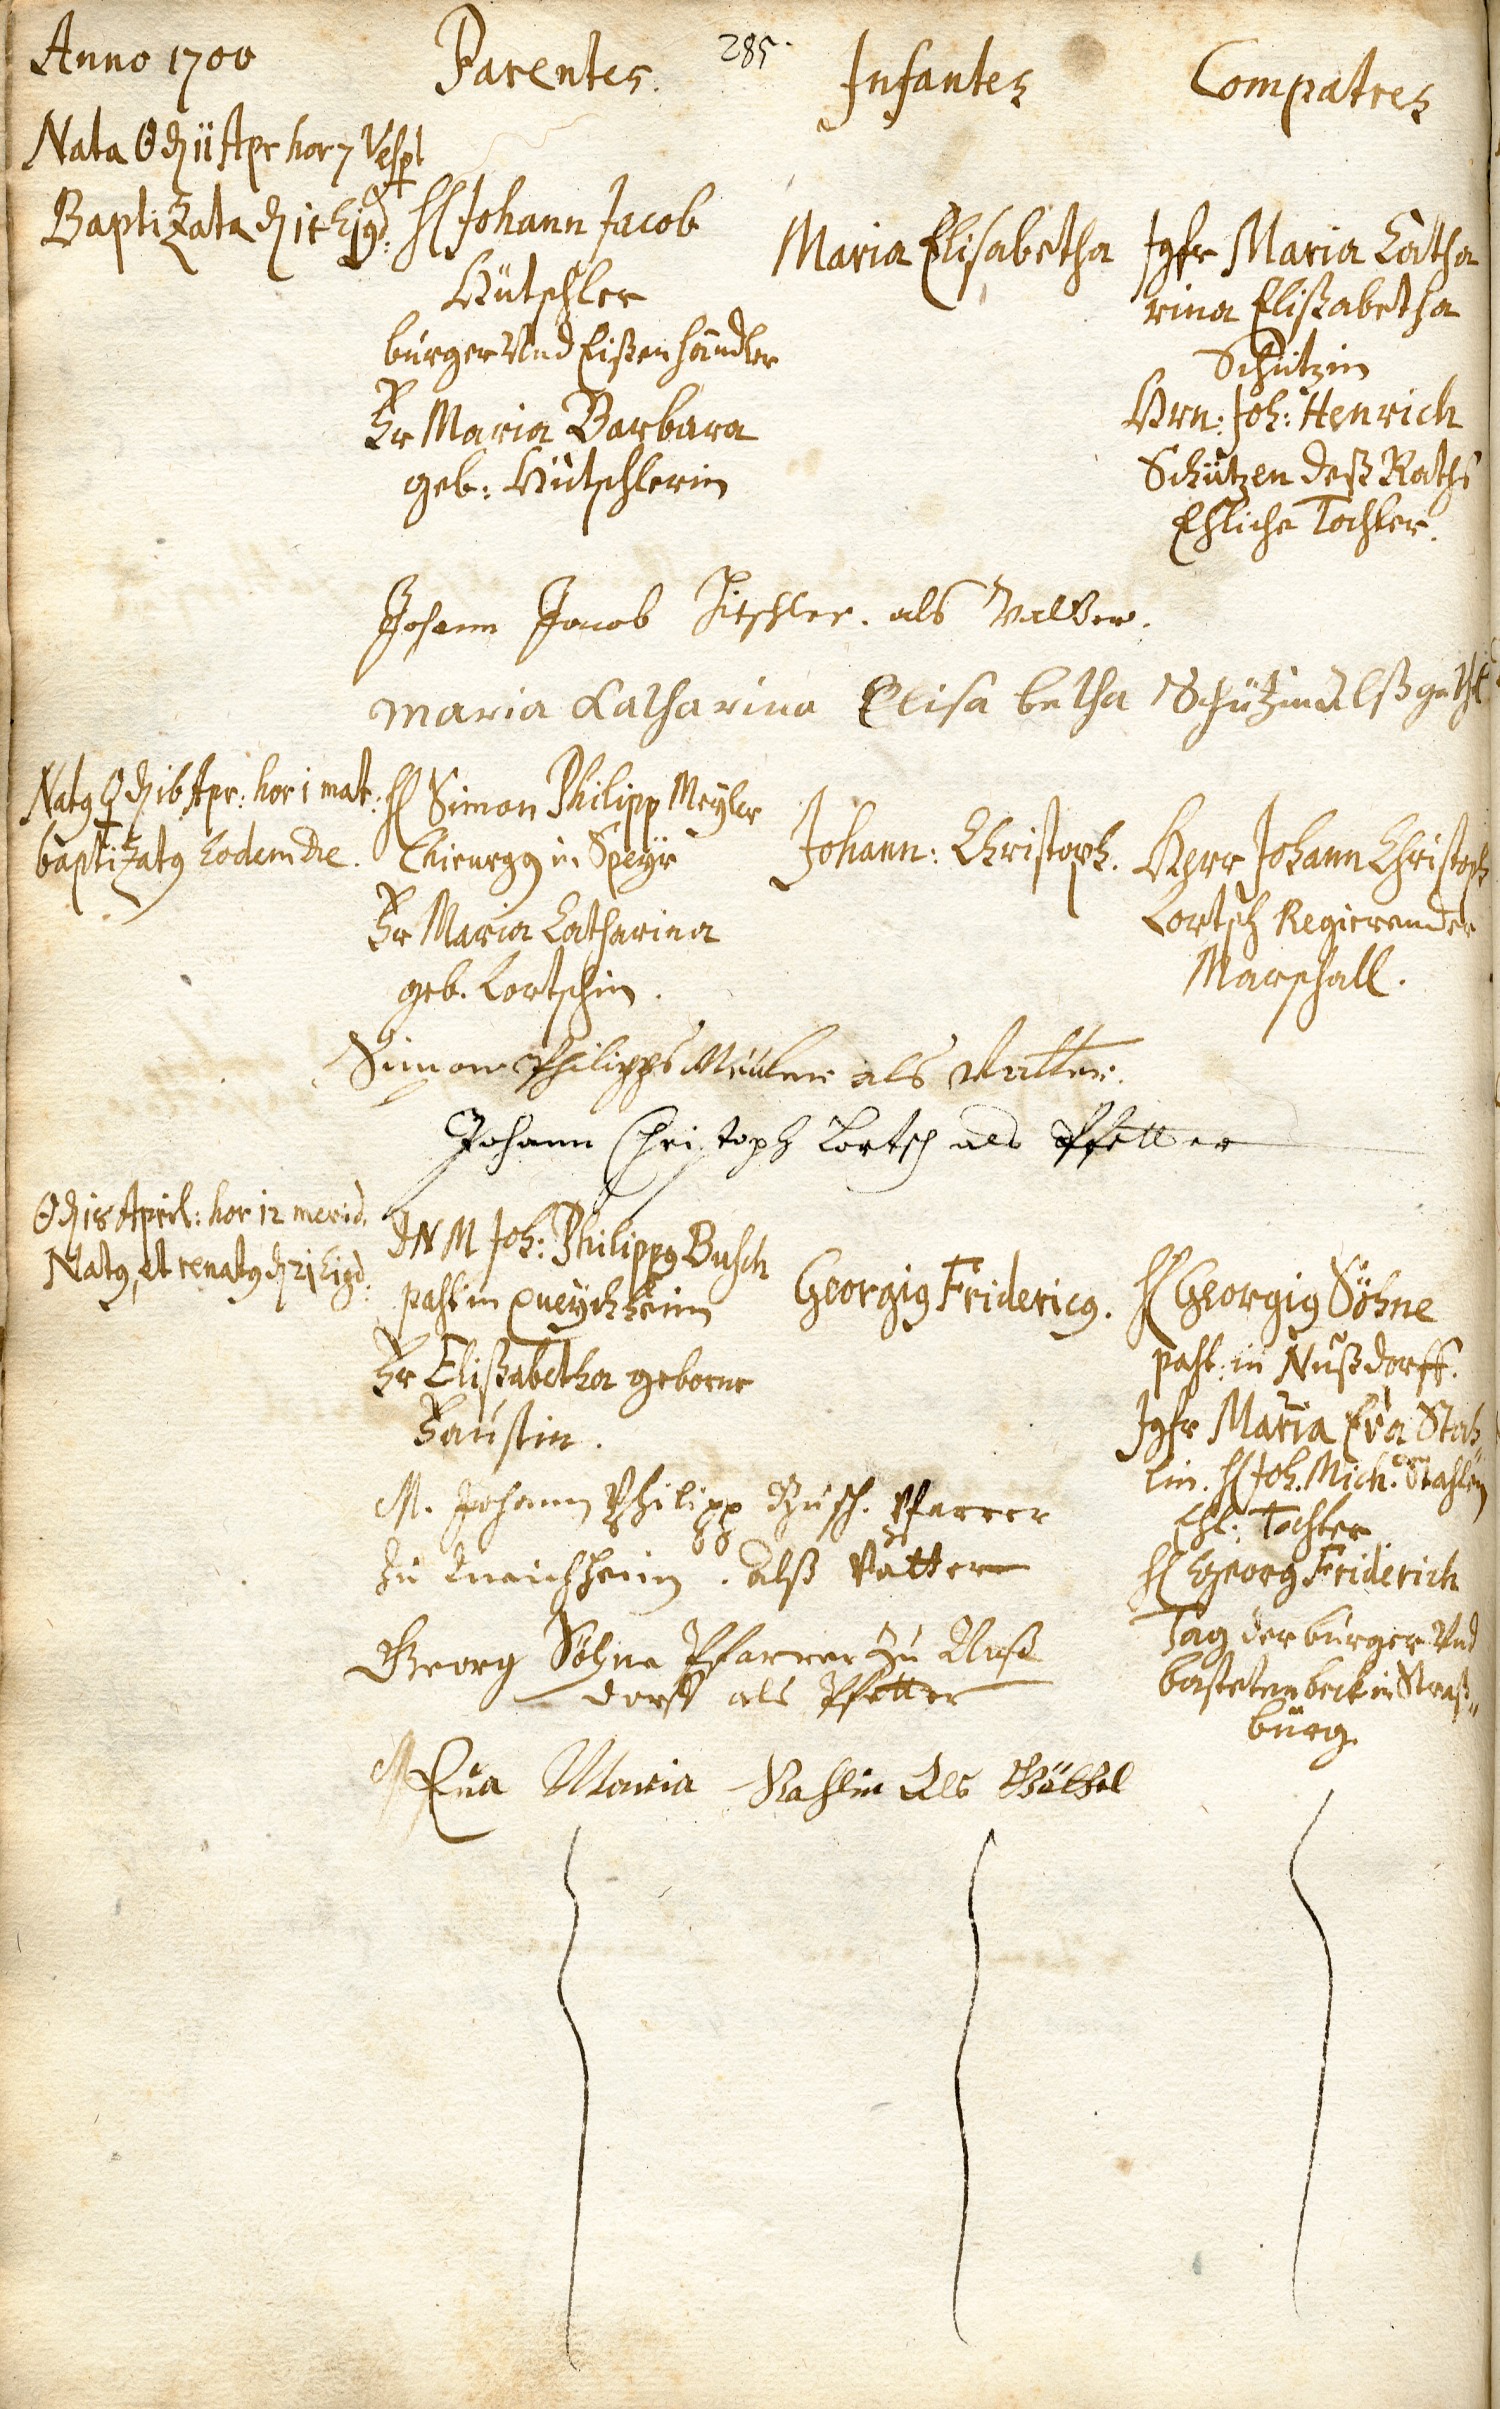 285.
Anno 1700
Parentes.
Infantes
Compatres
Nata ☉ d 11 Apr hor 7 Vesp
Baptizata d 1 Ejgd:
H Johann Jacob
Hütschler
burger Und Eißenhändler
Fr Maria Barbara
geb: Hütschlerin
Maria Elisabetha
Jgfr Maria Catha
rina Elißabetha
Schützin
Hrn: Joh: Henrich
Schützen deß Raths
Ehliche Tochter.
Johann Jacob Hitschler. als Vatter.
Maria Catharina Elisa betha Schützin Alß
Natg ♀ d 16 Apr: hor 1 mat:
baptizatg Eodem die.
H Simon Philipp Meyler
Chirurgg in Speyr
Fr Maria Catharina
geb. Lortschin.
Johann: Christoph.
Herr Johann Christoph
Lortsch Regierender
Marschall.
Simon Philipps Meüler als Vatter.
Johann Christoph Lortsch als Pfetter
☉ d 18 April: hor 12 merid.
Natg, et renatg d 21 Ejgd:
DN M Joh: Philippg Busch
past in Queychheim
Fr Elißabetha geborne
Faustin.
Georgig Fridericg.
H Georgig Söhne
past: in Nußdorff.
Jgfr Maria Eva Stah
lin. H Joh. Mich. Stahlen
Ehl: Tochter
H Georg Friderich
Tag der burger Und
bastetenbeck in Straß„
burg.
M. Johann Philipp Busch. Pfarrer
zu Queichheim. alß Vatter
Georg Söhne Pfarrer zu Nuß
dorff als Pfetter
Eua Maria Stahlin Als Göthel